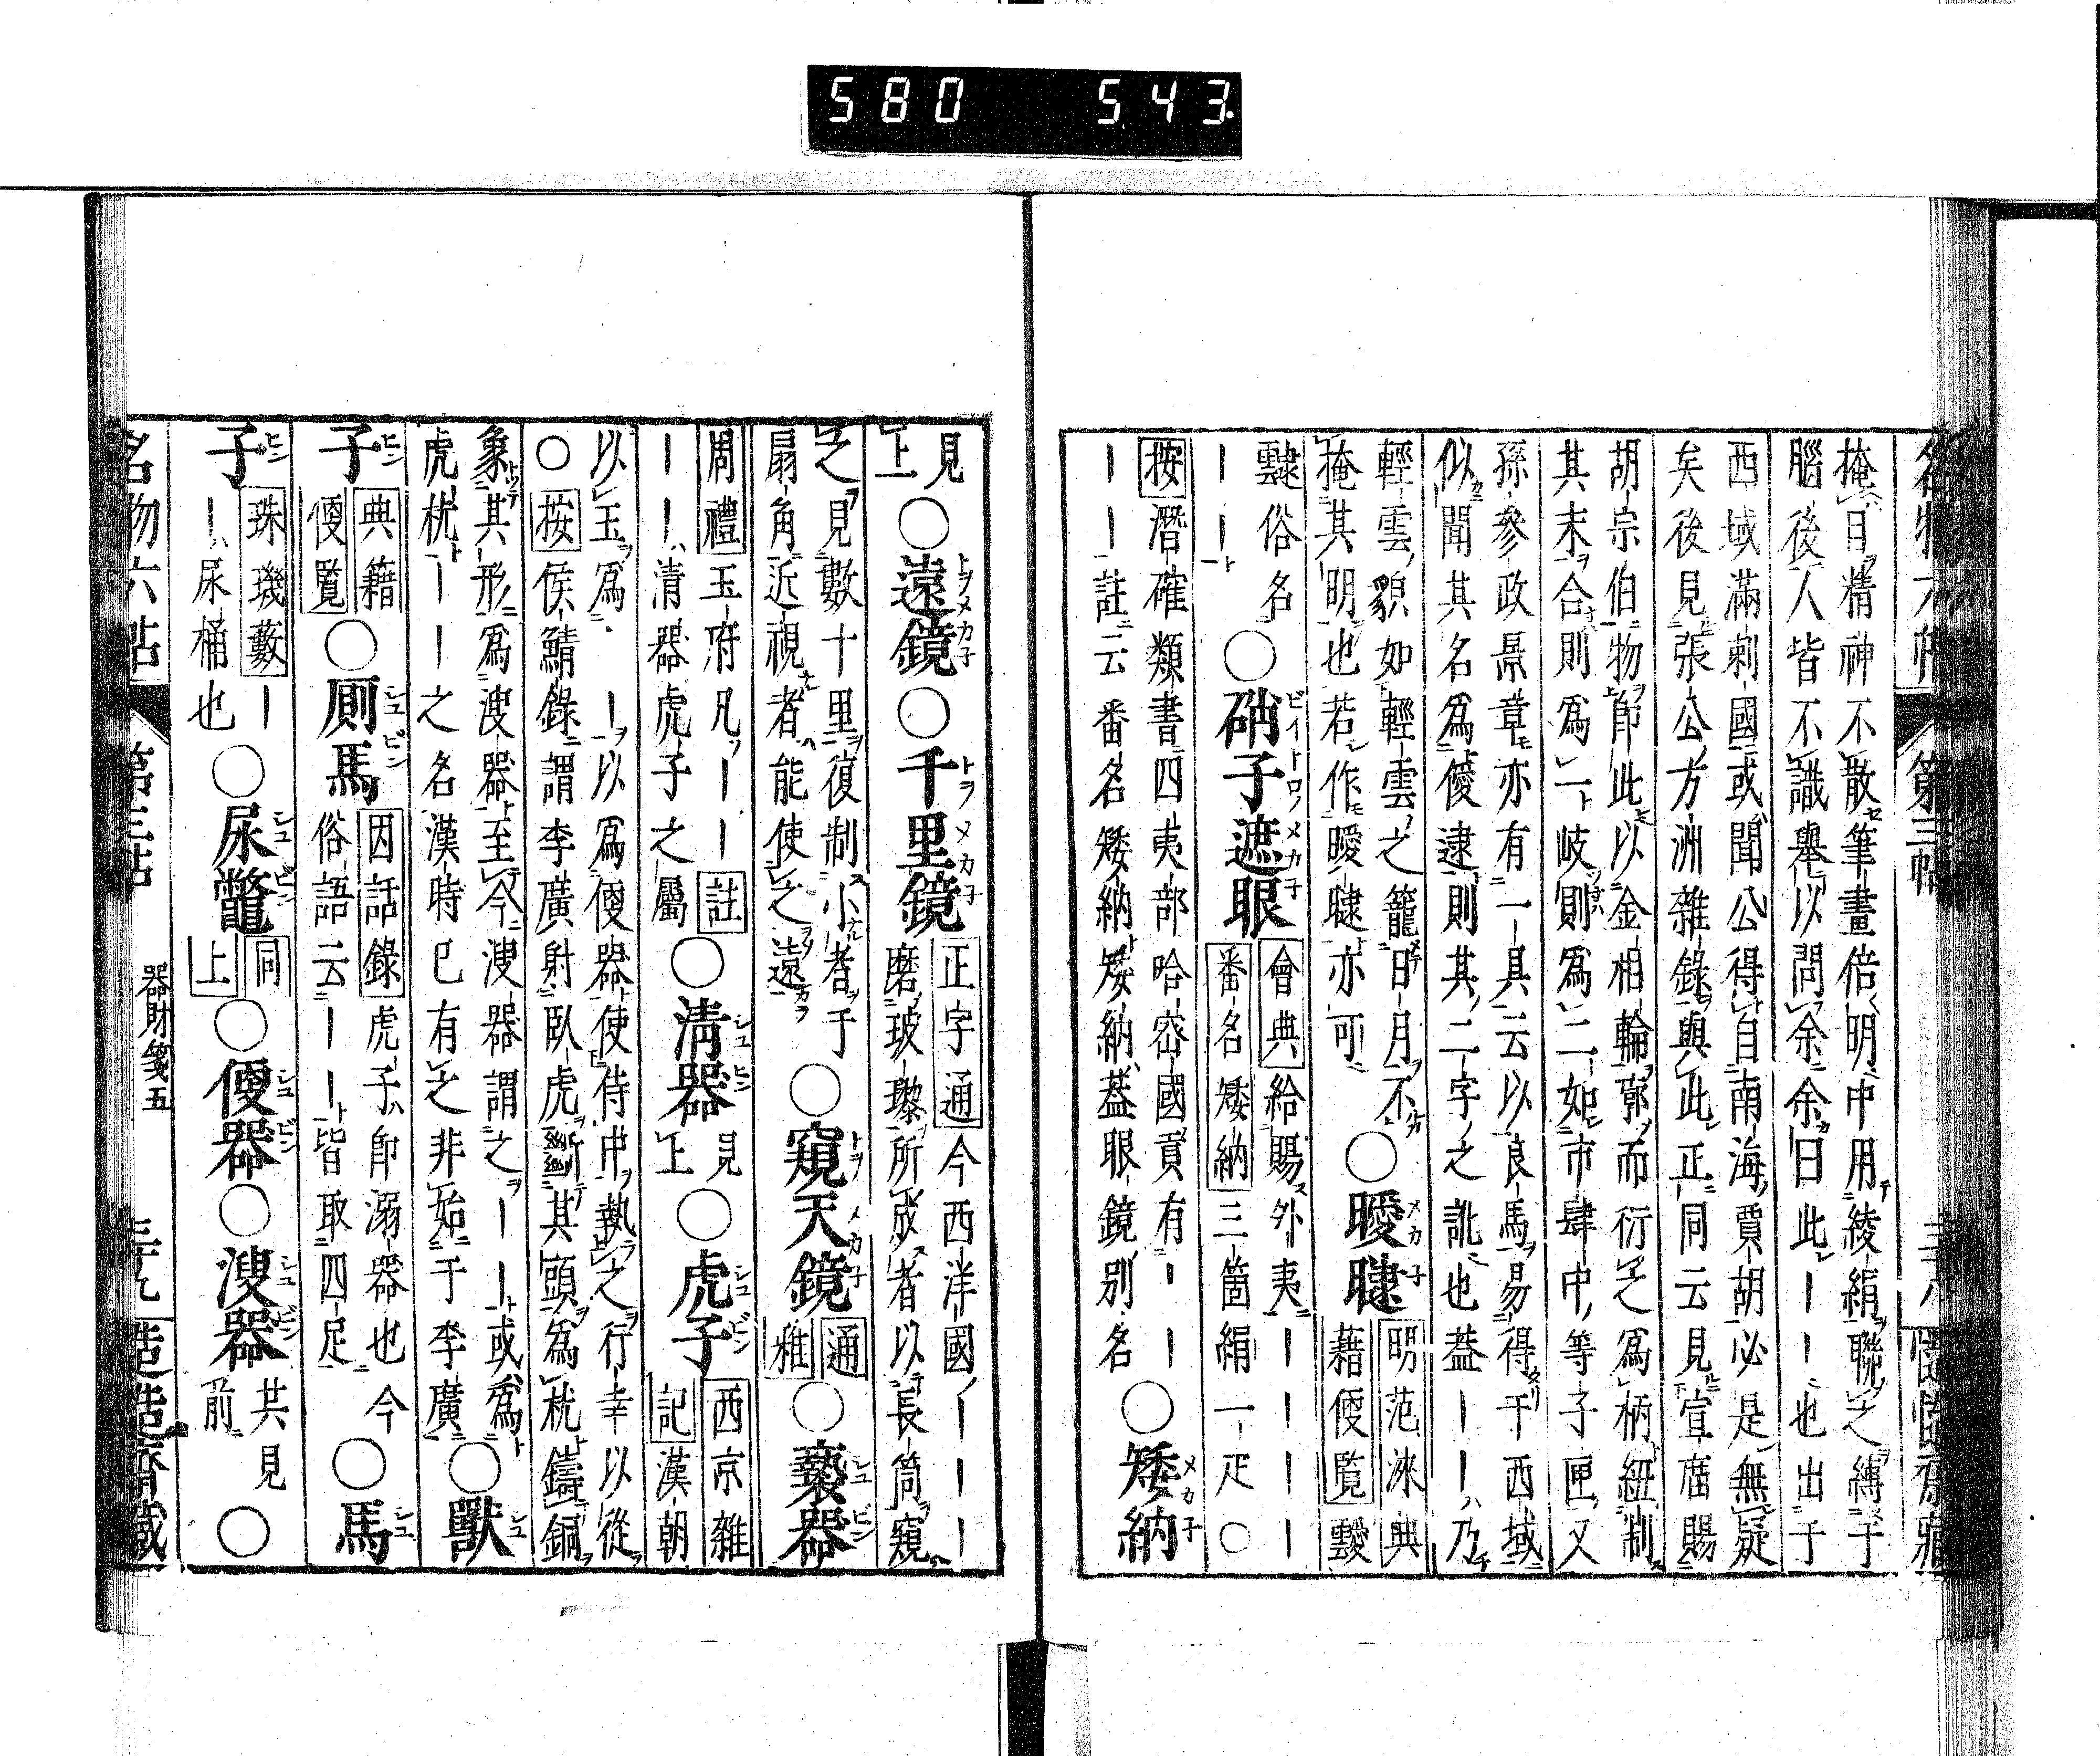 掩日精神不散筆畫倍明中用綾絹聯之縛于
腦後人皆不識舉以問余余曰此ーー也出于
西域滿剌國或聞公得自南海賈胡必是無疑
矣後見張公方洲雜錄與此正同云見宣廟賜
胡宗伯物即此以金相輪廓而衍之爲柄紐制
其末合則爲一岐則爲二如市肆中等子匣又
孫參政景章亦有一具云以良馬易得于西域
似聞其名爲僾逮則其二字之訛也蓋ーー乃
輕雲貌如輕雲之籠日月不
掩其明也若作曖㬣亦可
○曖㬣
明范淶典
藉便覧靉
靆俗名
ーー
○硝子遮眼
會典給賜外夷ーーーー
番名矮納三箇絹一疋○
按潛確類書四夷部哈密國貢有ーー
ーー註云番名矮納矮納蓋眼鏡別名
○矮納
見
上
○遠鏡○千里鏡
正字通今西洋國ーーー
磨玻瓈所成者以長筒窺
之見數十里復制小者于
扇角近視者能使之遠
○窺天鏡
通
雅
○褻器
周禮玉府凡ーー註
ーー清器虎子之屬
○清器
見
上
○虎子
西京雜
記漢朝
以玉爲ーー以爲便器使侍中執之行幸以從
○按侯鯖錄謂李廣射臥虎斷其頭爲枕鑄銅
象其形爲溲器至今溲器謂之ーー或爲
虎枕ーー之名漢時已有之非始于李廣
○獸
子
典籍
便覧
○厠馬
因話錄虎子即溺器也今
俗語云ーー皆取四足
○馬
子
珠璣藪ー
ー尿桶也
○尿鼈
同
上
○便器○溲器
共見
前
○
名物六帖 第三帖 器財箋五 三十九
580 543.